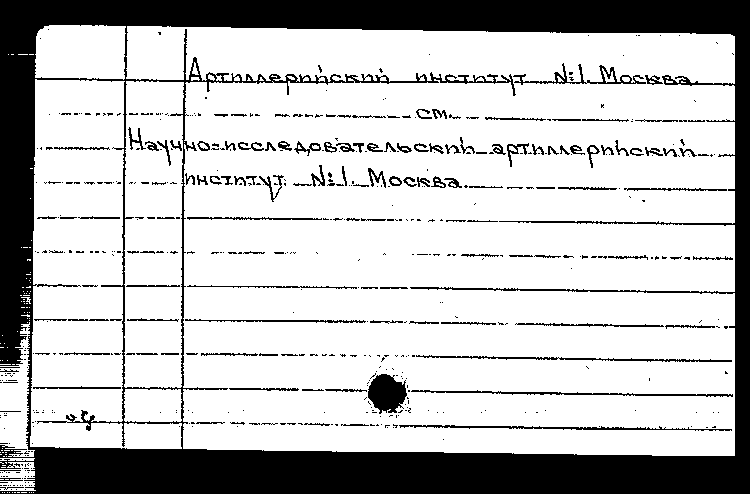 Артиллерийский институт №1. Москва.
см.
Научно-исследовательский артиллерийский
институт №1. Москва.